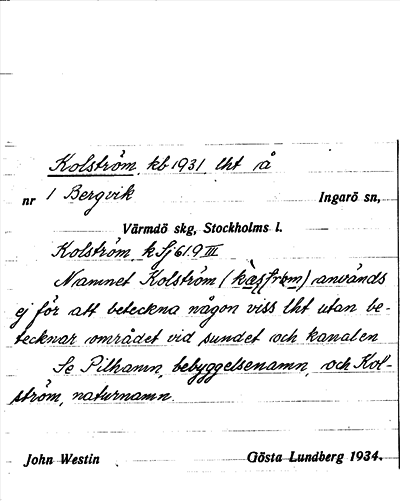 Kolström, kb 1931, lht å
nr 1 Bergvik Ingarö sn,
Värmdö skg, Stockholms l.
Kolström, k Sj 61 9 III
Namnet Kolström () används
ej för att beteckna någon viss lht utan be-
tecknar området vid sundet och kanalen
Se Pilhamn, bebyggelsenamn, och Kol-
ström, naturnamn.
John Westin Gösta Lundberg 1934.